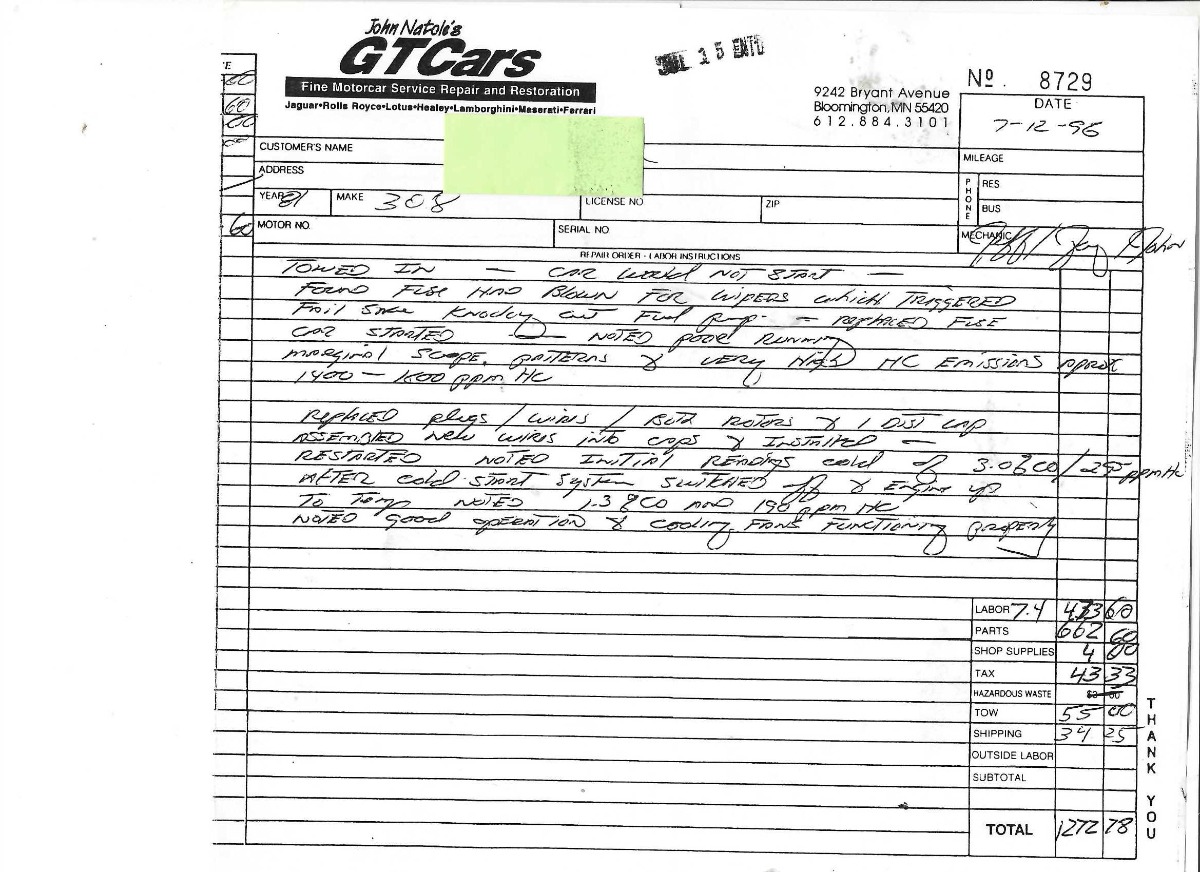 John Natole's
GTCars
Fine Motorcar Service Repair and Restoration
Jaguar•Rolls Royce•Lotus•Healey•Lamborghini•Maserati•Ferrari
JUL 15 ENTD
9242 Bryant Avenue
Bloomington, MN 55420
612.884.3101
No. 8729
DATE
7-12-96
CUSTOMER'S NAME
ADDRESS
YEAR 81
MAKE 308
LICENSE NO
ZIP
MILEAGE
PHONE
RES
BUS
MOTOR NO.
SERIAL NO.
MECHANIC
REPAIR ORDER - LABOR INSTRUCTIONS
TOWED IN — CAR WOULD NOT START —
FOUND FUSE HAD BLOWN FOR WIPERS which TRIGGERED
Fail Safe Knocking out Fuel pump - — REPLACED FUSE
CAR STARTED — NOTED POOR RUNNING
MARGINAL SCOPE PATTERNS & VERY HIGH HC EMISSIONS Aprox
1400 — 1600 ppm HC
REPLACED Plugs / WIRES / BOTH ROTORS & 1 DIST CAP
ASSEMBLED NEW WIRES into CAPS & INSTALLED —
RESTARTED NOTED INITIAL READINGS cold of 3.0% CO / 295 ppm HC
AFTER cold START SYSTEM SWITCHED off & Engine up
TO Temp NOTED 1.3% CO AND 190 ppm HC
NOTED Good OPERATION & COOLING FANS FUNCTIONING PROPERLY
LABOR 7.4 433 60
PARTS 662 60
SHOP SUPPLIES 4 00
TAX 43 33
HAZARDOUS WASTE
TOW 55 00
SHIPPING 34 25
OUTSIDE LABOR
SUBTOTAL
TOTAL 1272 78
THANK YOU